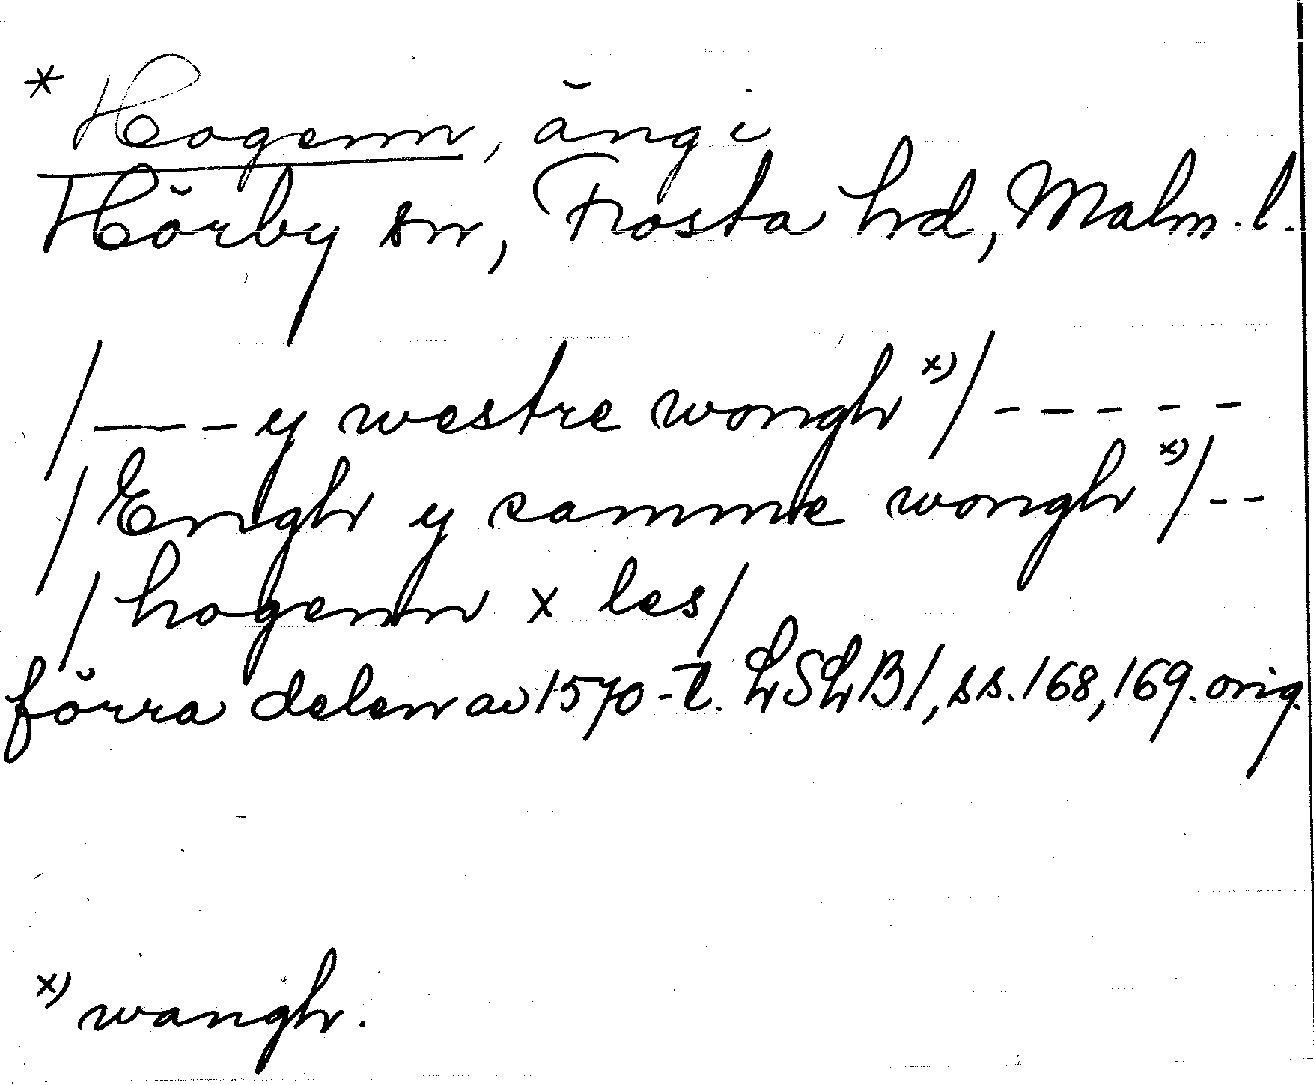 * Hogenn, äng i
Hörby sn, Frosta hd, Malm. l.
/ – – – y westre wongh x) / – – – – –
/ Engh y samme wongh x) / – –
/ hogenn x les /
förra delen av 1570-t. LSLB 1, ss. 168, 169. orig.
x) wangh.